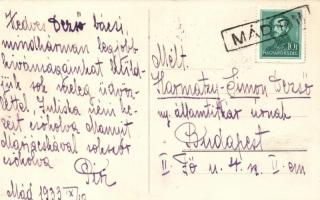 Kedves Dezső bácsi
mindhárman legjobb
kívánságainkat küld-
jük sok meleg üdvöz-
lettel, Juliska néni ke-
zét csókolva Mamut
Magdacskával sokszor
csókolva
Mád 1933 X/10
MÁD
MAGYARORSZÁG
10f
Mélt.
Harmathy-Simon Dezső
ny. államtitkár úrnak
Budapest
II. Fő u. 4. sz II. em